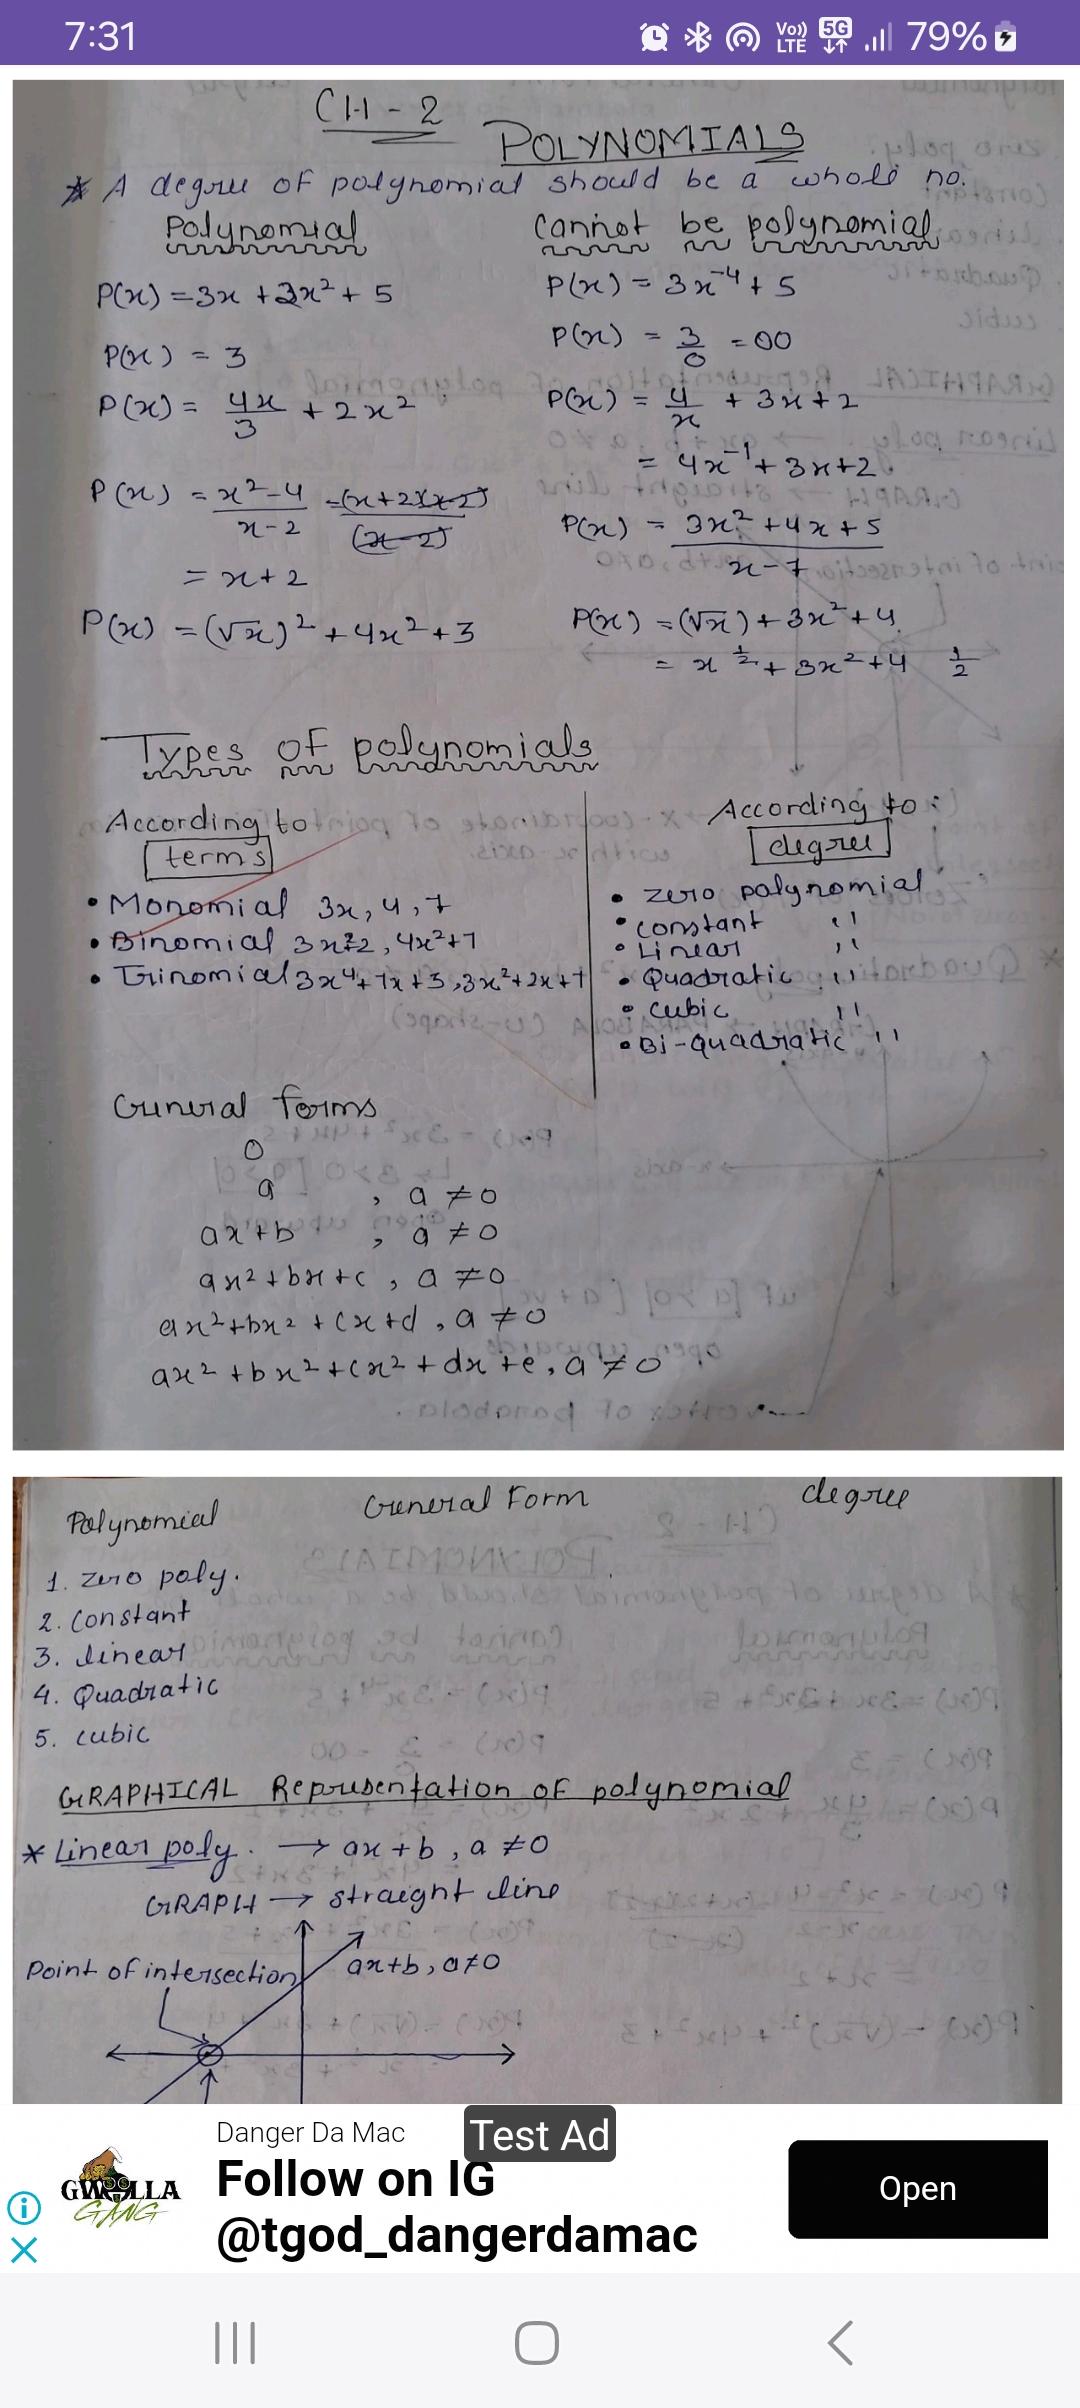 7:31 Vo)) LTE 5G 79%
CH - 2
POLYNOMIALS
* A degree of polynomial should be a whole no.
Polynomial
P(x) = 3x + 2x² + 5
P(x) = 3
P(x) = 4x/3 + 2x²
P(x) = x²-4/x-2 = (x+2)(x-2)/(x-2)
= x+2
P(x) = (√x)² + 4x² + 3
Cannot be polynomial
P(x) = 3x⁻⁴ + 5
P(x) = 3/0 = 00
P(x) = 4/x + 3x + 2
= 4x⁻¹ + 3x + 2
P(x) = 3x² + 4x + 5/x-7
P(x) = (√x) + 3x² + 4
= x ½ + 3x² + 4 ½
Types of polynomials
According to
terms
• Monomial 3x, 4, 7
• Binomial 4x²+7
• Trinomial 3x⁴+7x+3, 3x²+2x+7
According to :
degree
• zero polynomial
• constant "
• Linear "
• Quadratic "
• cubic "
• Bi-quadratic "
General forms
0
a , a ≠ 0
ax+b , a ≠ 0
ax²+bx+c , a ≠ 0
ax²+bx²+cx+d , a ≠ 0
ax²+bx²+cx²+dx+e, a ≠ 0
Polynomial General Form degree
1. zero poly.
2. constant
3. linear
4. Quadratic
5. cubic
GRAPHICAL Representation of polynomial
* Linear poly. → ax+b , a ≠ 0
GRAPH → straight line
Point of intersection ax+b, a≠0
Test Ad
Danger Da Mac
Follow on IG
@tgod_dangerdamac
GWOLLA
GANG
Open